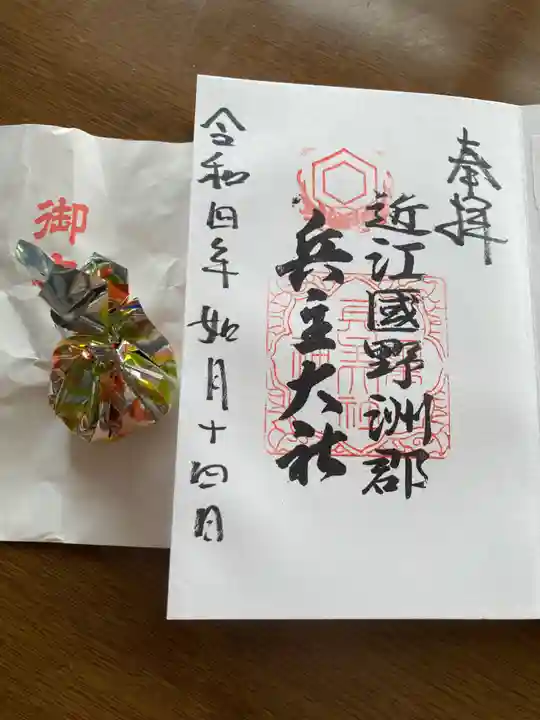 奉拝
近江國野洲郡
兵主大社
令和四年如月十四日
御